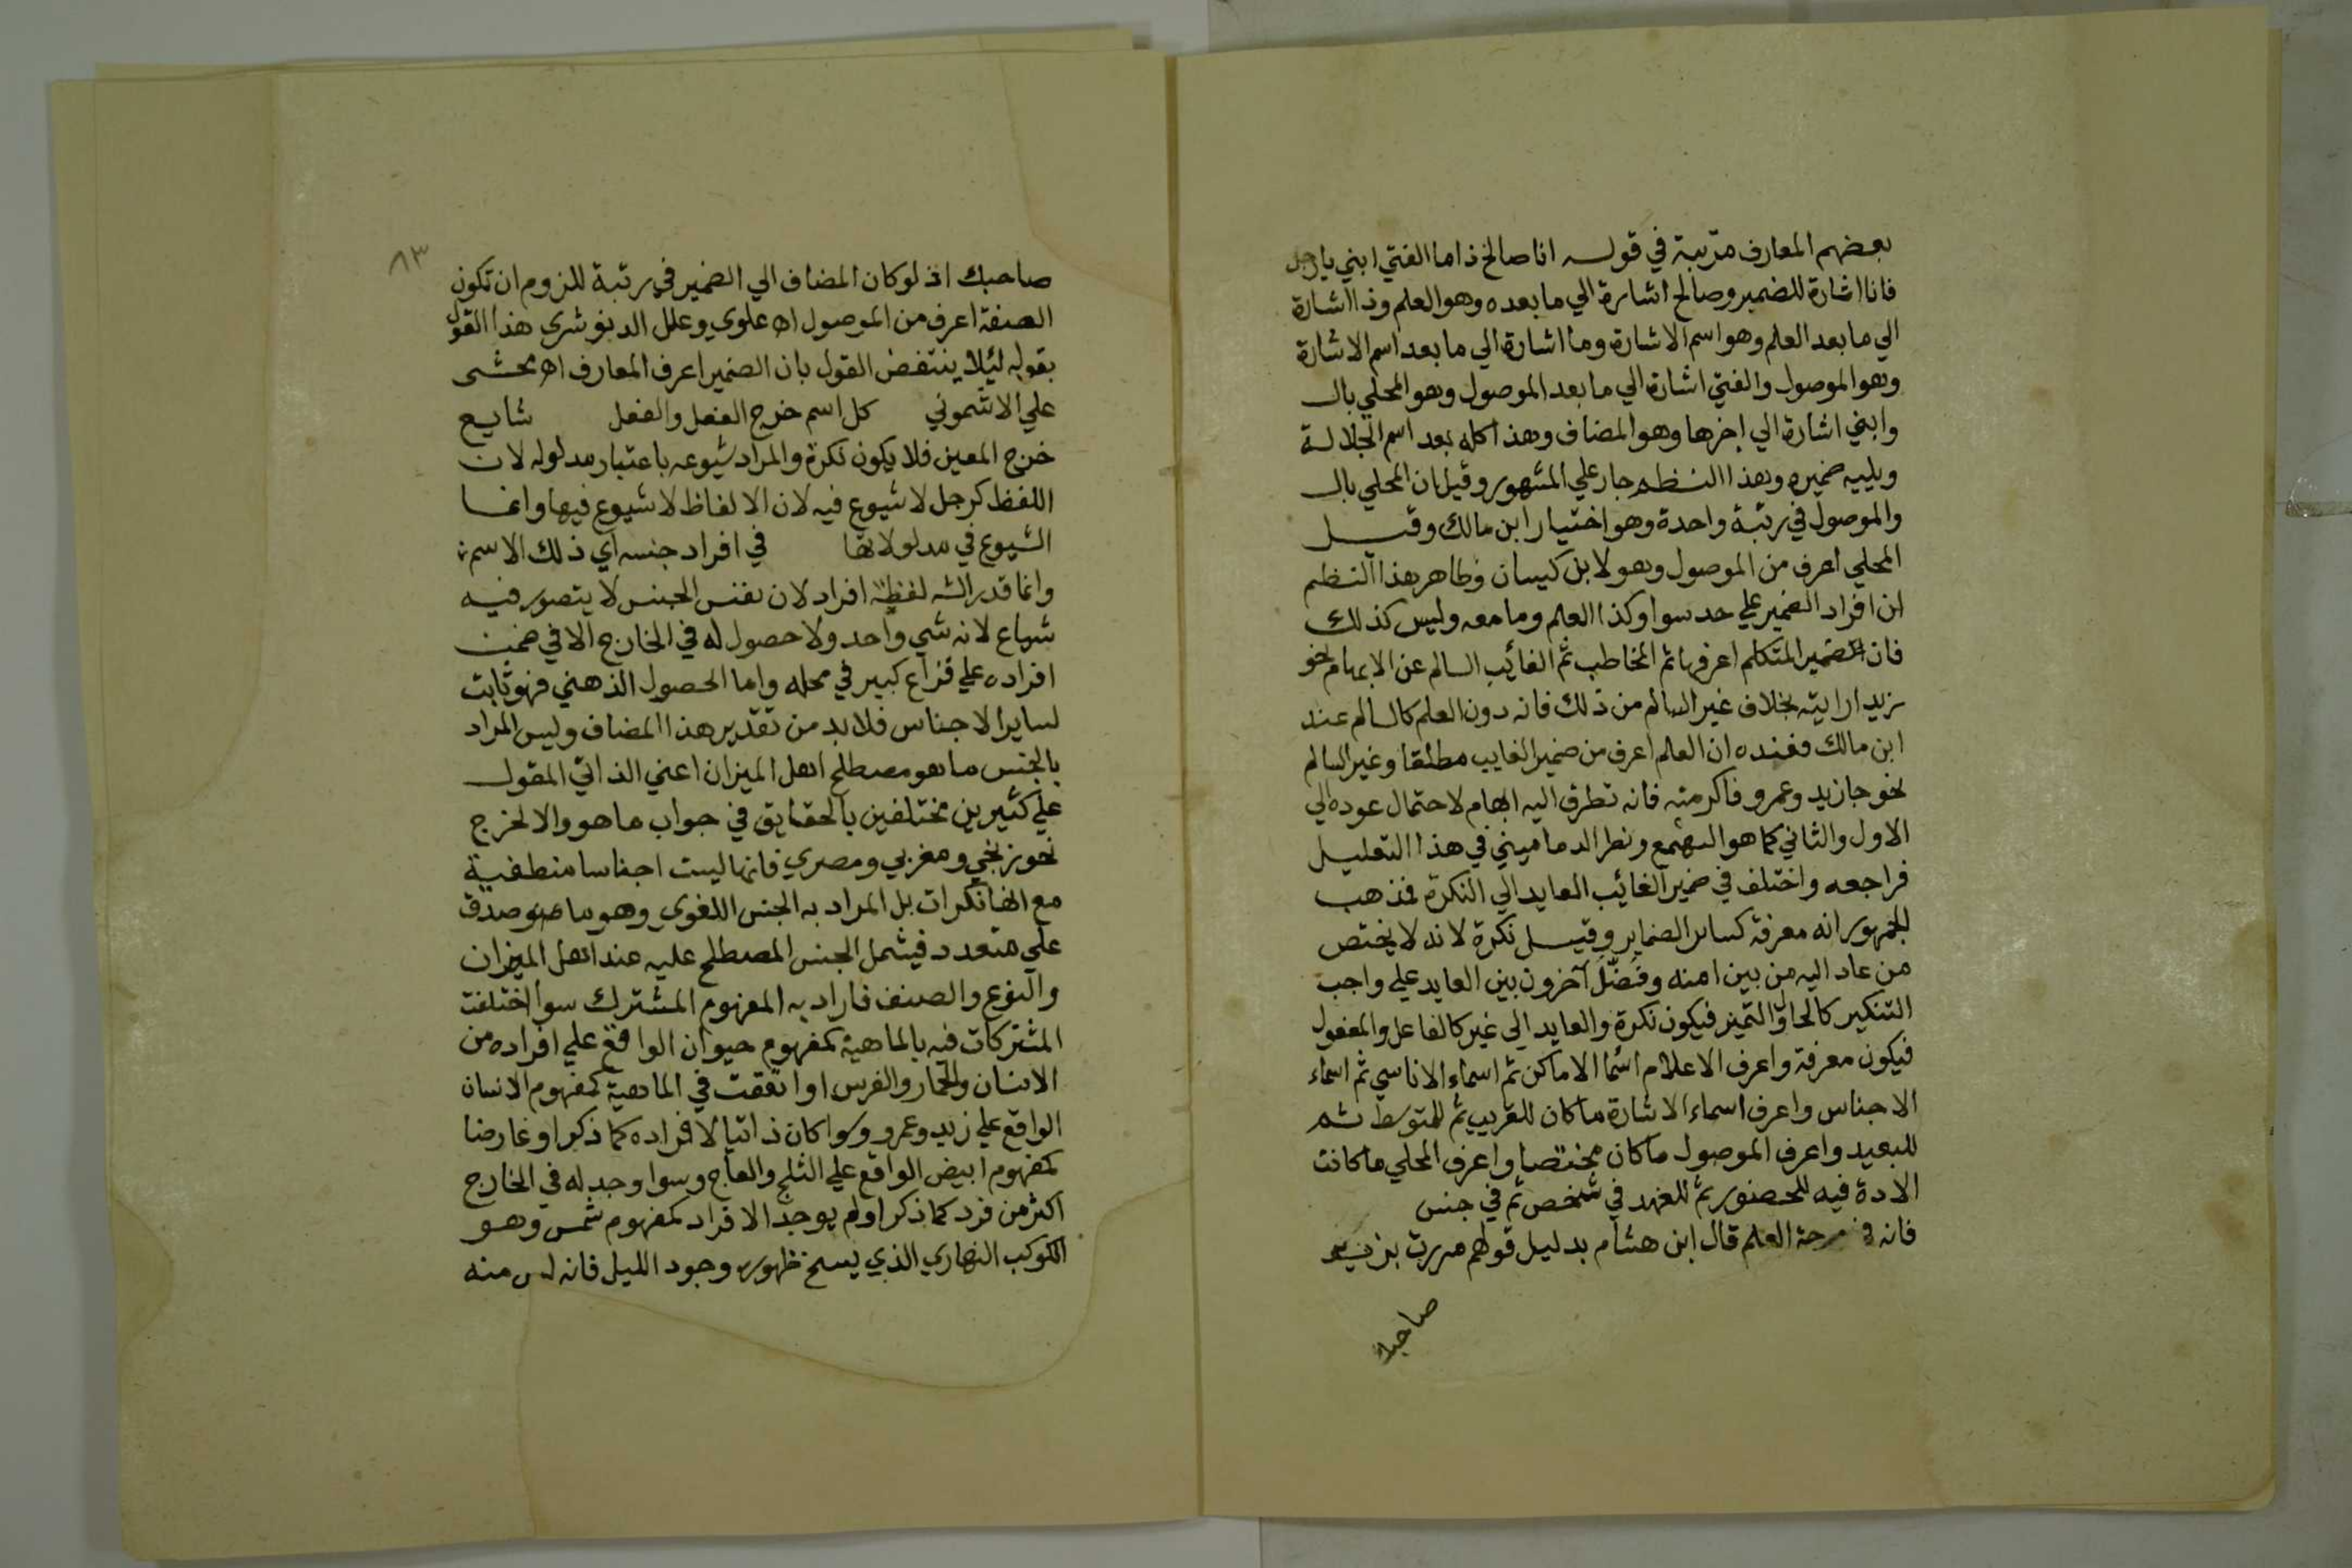 بعضهم المعارف مرتبة في قوله انا صالح ذا ما الفتي ابني يا رجل
فانا اشارة للضمير وصالح اشارة الي ما بعده وهو العلم وذا اشارة
الي ما بعد العلم وهو اسم الاشارة وما اشارة الي ما بعد اسم الاشارة
وهو الموصول والفتي اشارة الي ما بعد الموصول وهو المحلي بال
وابني اشارة الي اخرها وهو المضاف وهذا كله بعد اسم الجلالة
ويليه ضميره وهذا النظم جار علي المشهور وقيل ان المحلي بال
والموصول في رتبة واحدة وهو اختيار ابن مالك وقيل
المحلي اعرف من الموصول وهو لابن كيسان وظاهر هذا النظم
ان افراد الضمير علي حد سوا وكذا العلم وما معه وليس كذلك
فان الضمير المتكلم اعرفها ثم المخاطب ثم الغائب السالم عن الابهام نحو
زيد ارايته بخلاف غير السالم من ذلك فانه دون العلم كالسالم عند
ابن مالك فعنده ان العلم اعرف من ضمير الغايب مطلقا وغير السالم
نحو جا زيد وعمرو فاكرمته فانه تطرق اليه ابهام لاحتمال عوده الي
الاول والثاني كما هو الهمع ونظر الدماميني في هذا التعليل
فراجعه واختلف في ضمير الغائب العايد الي النكرة فمذهب
الجمهور انه معرفة كسائر الضماير وقيل نكرة لانه لا يختص
من عاد اليه من بين امته وفصّل آخرون بين العايد علي واجب
التنكير كالحال والتميز فيكون نكرة والعايد الي غير كالفاعل والمفعول
فيكون معرفة واعرف الاعلام اسما الاماكن ثم اسماء الاناسي ثم اسماء
الاجناس واعرف اسماء الاشارة ما كان للقريب ثم للمتوسط ثم
للبعيد واعرف الموصول ما كان مختصا واعرف المحلي ما كانت
الاداة فيه للحضور ثم للعهد في شخص ثم في جنس
فانه في العلم قال ابن هشام بدليل قولهم مررت بزيد
صاحبك
٨٣
صاحبك اذ لو كان المضاف الي الضمير في رتبة للزوم ان تكون
الصفة اعرف من الموصول اه علوي وعلل الدنوشري هذا القول
بقوله ليئلا ينتقض القول بان الضمير اعرف المعارف اه محشى
علي الاشموني كل اسم خرج الفعل والفعل شايع
خرج المعين فلا يكون نكرة والمراد شيوعه باعتبار مدلوله لان
اللفظ كرجل لا شيوع فيه لان الالفاظ لا شيوع فيها وانما
الشيوع في مدلولاتها في افراد جنسه اي ذلك الاسم
وانما قدر الش لفظة افراد لان نفس الجنس لا يتصور فيه
شياع لانه شي واحد ولا حصول له في الخارج الا في ضمن
افراده علي نزاع كبير في محله واما الحصول الذهني فهو ثابت
لساير الاجناس فلا بد من تقدير هذا المضاف وليس المراد
بالجنس ما هو مصطلح اهل الميزان اعني الذاتي المقول
علي كثيرين مختلفين بالحقايق في جواب ما هو والا لخرج
نحو زنجي ومغربي ومصري فانها ليست اجناسا منطقية
مع انها نكرات بل المراد به الجنس اللغوي وهو ما صدق
علي متعدد فيشمل الجنس المصطلح عليه عند اهل الميزان
والنوع والصنف فاراد به المفهوم المشترك سوا اختلفت
المشتركات فيه بالماهية كمفهوم حيوان الواقع علي افراده من
الانسان والحمار والفرس او اتفقت في الماهية كمفهوم الانسان
الواقع علي زيد وعمرو وسوا كان ذاتيا لافراده كما ذكر او عارضا
كمفهوم ابيض الواقع علي الثلج والعاج وسوا وجد له في الخارج
اكثر من فرد كما ذكر او لم يوجد الا فراد كمفهوم شمس وهو
الكوكب النهاري الذي ينسخ ظهوره وجود الليل فانه ليس منه